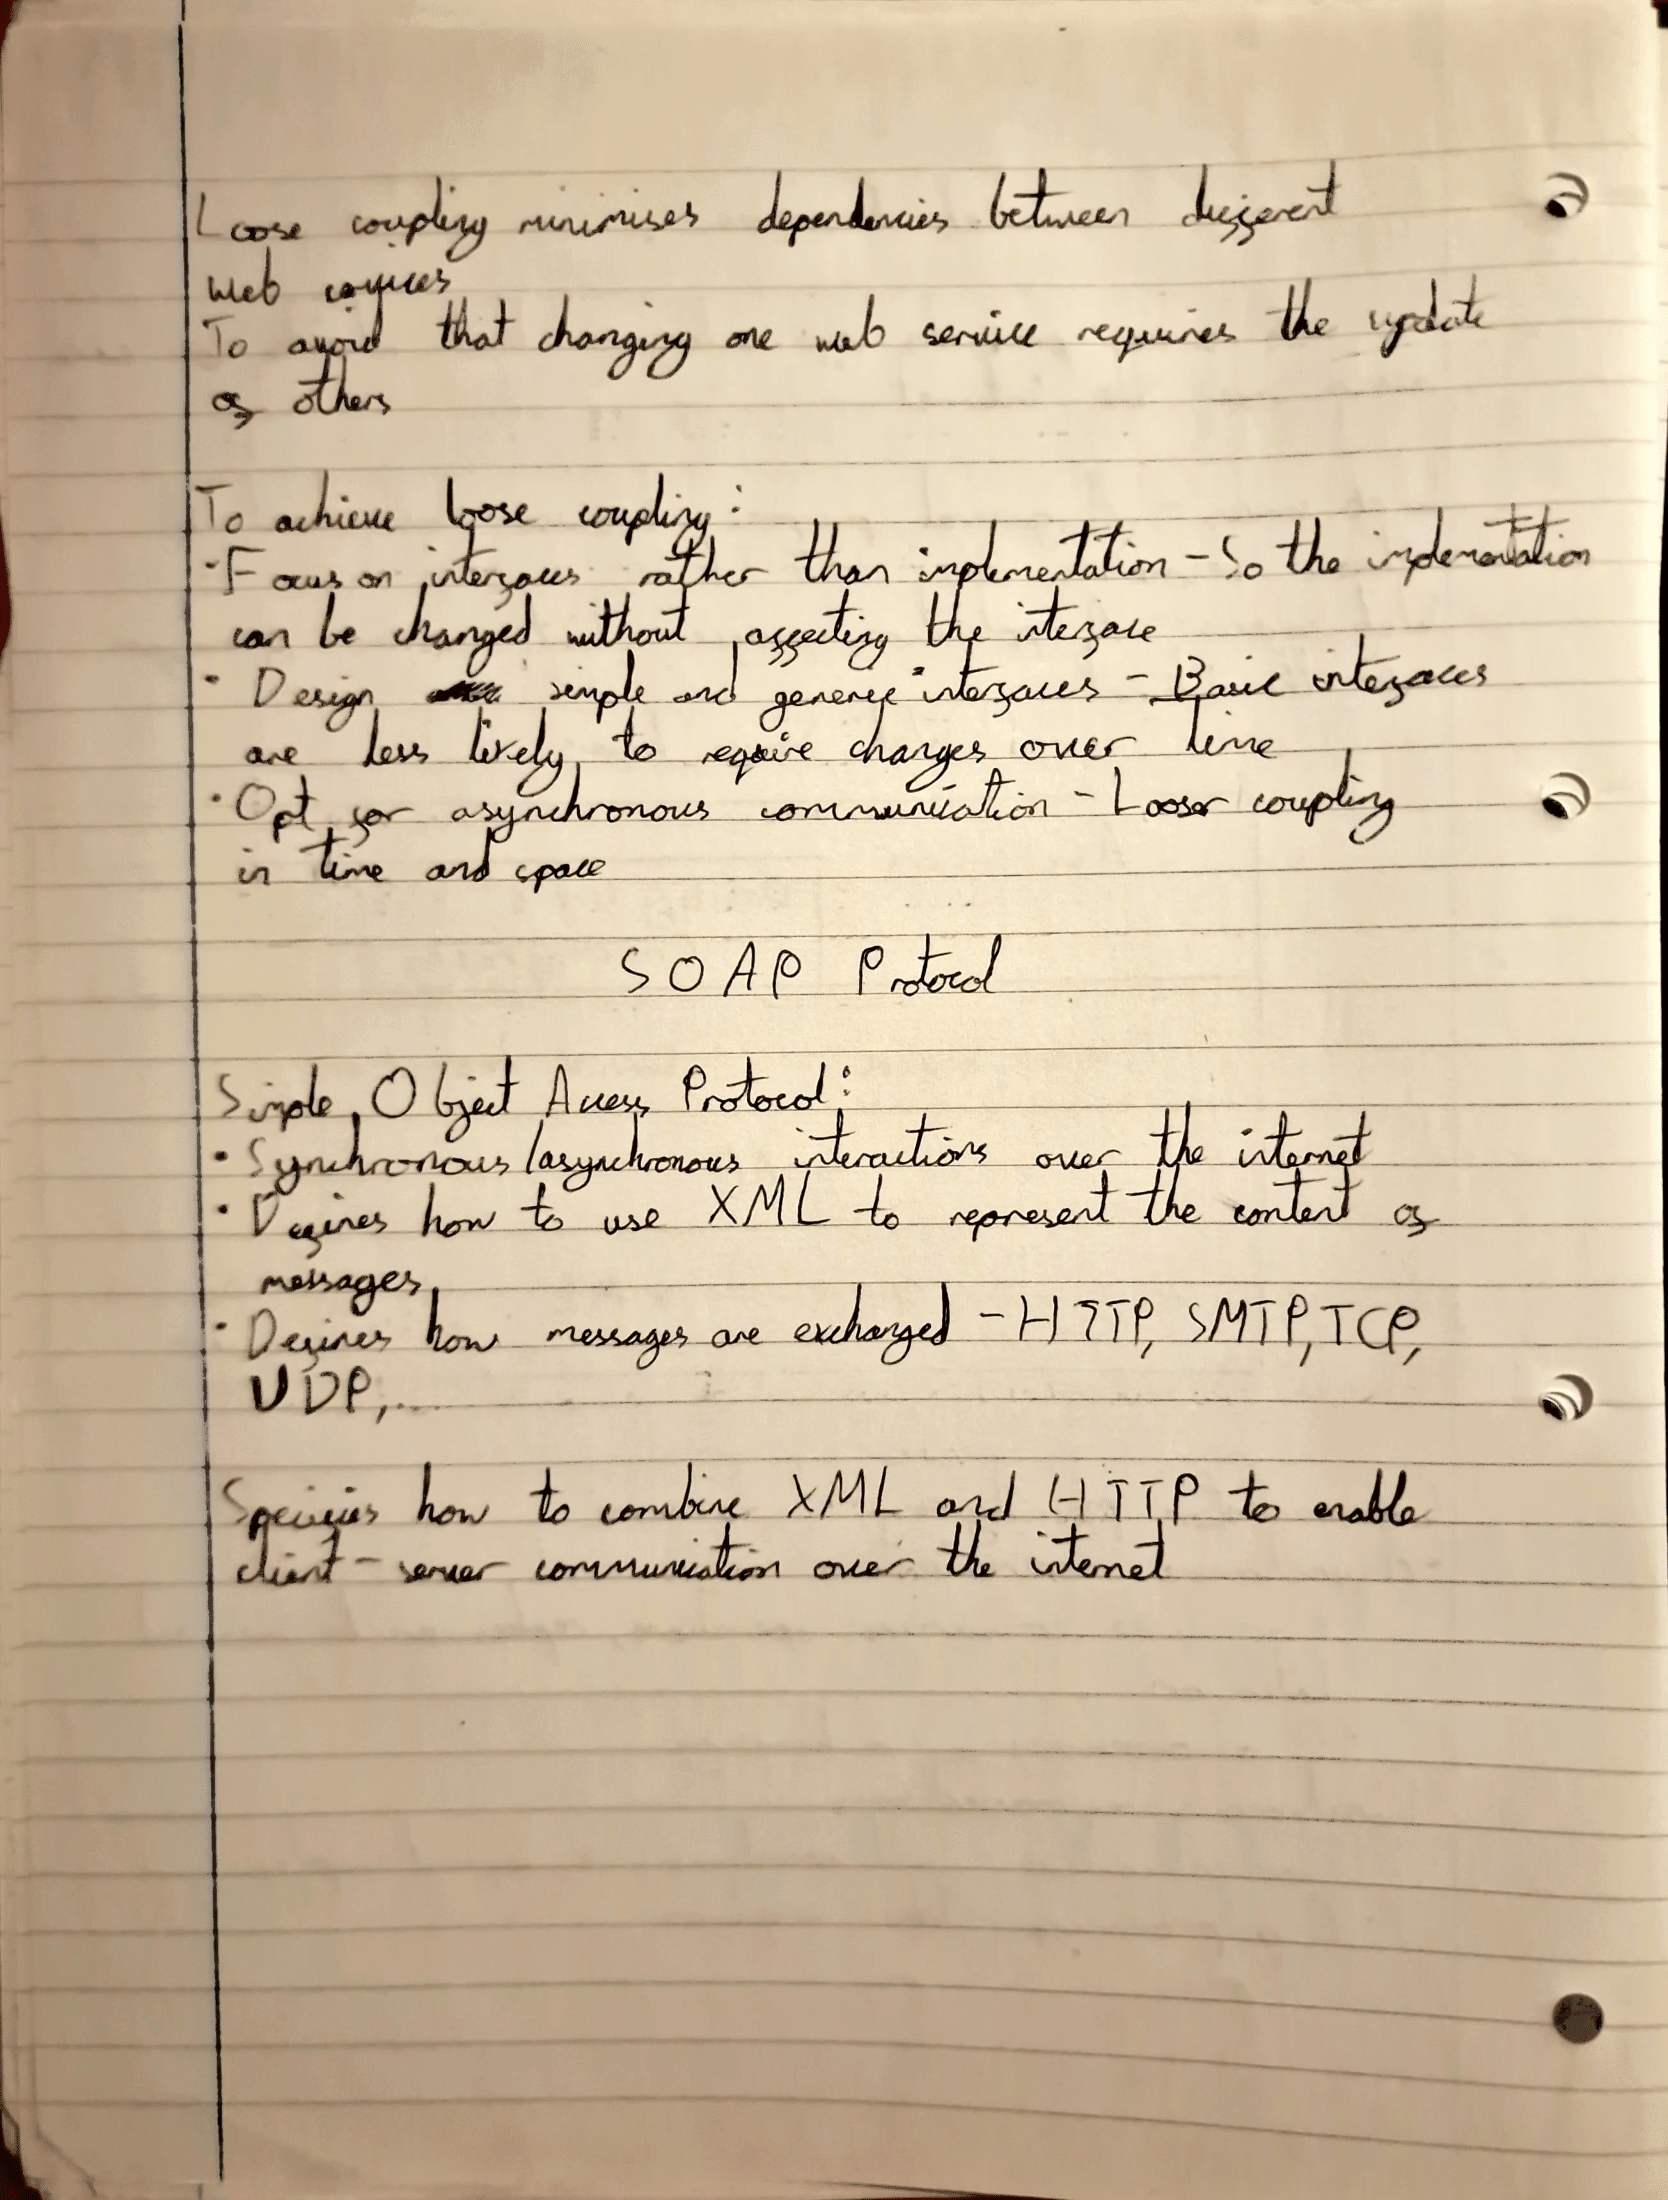 Loose coupling minimises dependencies between different
web services
To avoid that changing one web service requires the update
of others
To achieve loose coupling:
·Focus on interfaces rather than implementation - So the implementation
can be changed without affecting the interface
· Design simple and generic interfaces - Basic interfaces
are less likely to require changes over time
·Opt for asynchronous communication - Looser coupling
in time and space
SOAP Protocol
Simple Object Access Protocol:
· Synchronous/asynchronous interactions over the internet
· Defines how to use XML to represent the content of
messages
· Defines how messages are exchanged - HTTP, SMTP, TCP,
UDP,....
Specifies how to combine XML and HTTP to enable
client-server communication over the internet